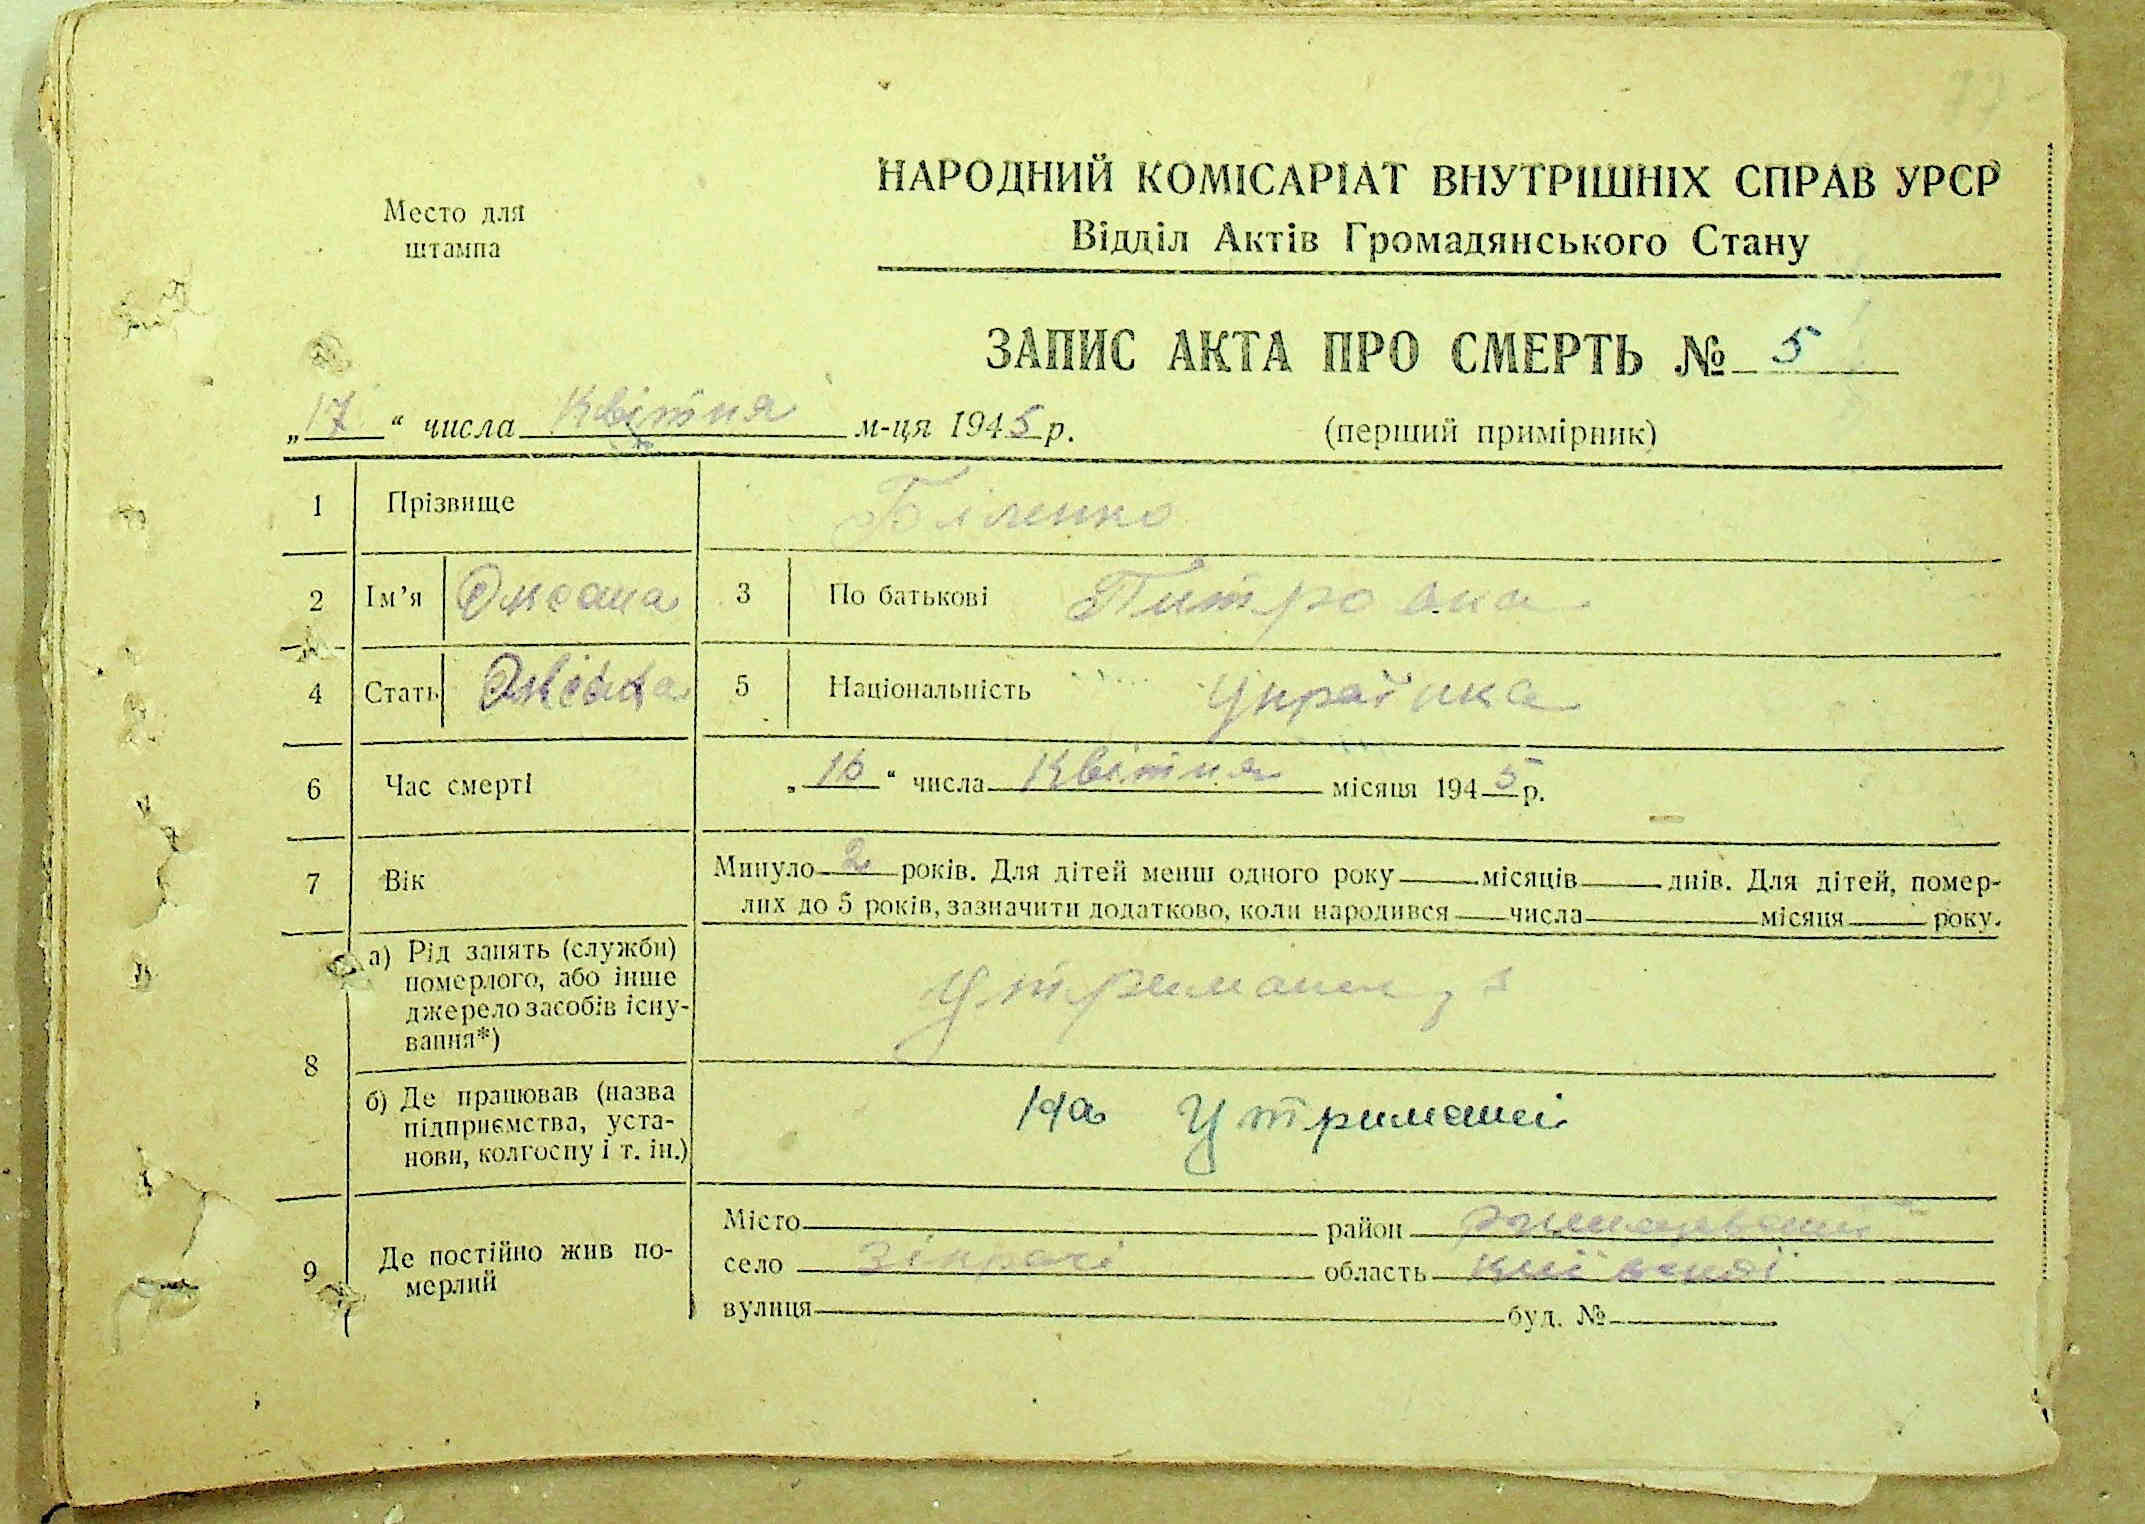 77
Место для
штампа
НАРОДНИЙ КОМІСАРІАТ ВНУТРІШНІХ СПРАВ УРСР
Відділ Актів Громадянського Стану
ЗАПИС АКТА ПРО СМЕРТЬ № 5
„17“ числа Квітня м-ця 1945 р. (перший примірник)
1 Прізвище Біленко
2 Ім’я Оксана 3 По батькові Питровна
4 Стать Жінка 5 Національність Українка
6 Час смерті „16“ числа Квітня місяця 1945 р.
7 Вік Минуло 2 років. Для дітей менш одного року місяців днів. Для дітей, помер-
лих до 5 років, зазначити додатково, коли народився числа місяця року.
8 а) Рід занять (служби)
померлого, або інше
джерело засобів існу-
вання*)
б) Де працював (назва
підприємства, уста-
нови, колгоспу і т. ін.)
На Утримані
9 Де постійно жив по-
мерлий
Місто район
село Зікрачі область Київській
вулиця буд. №